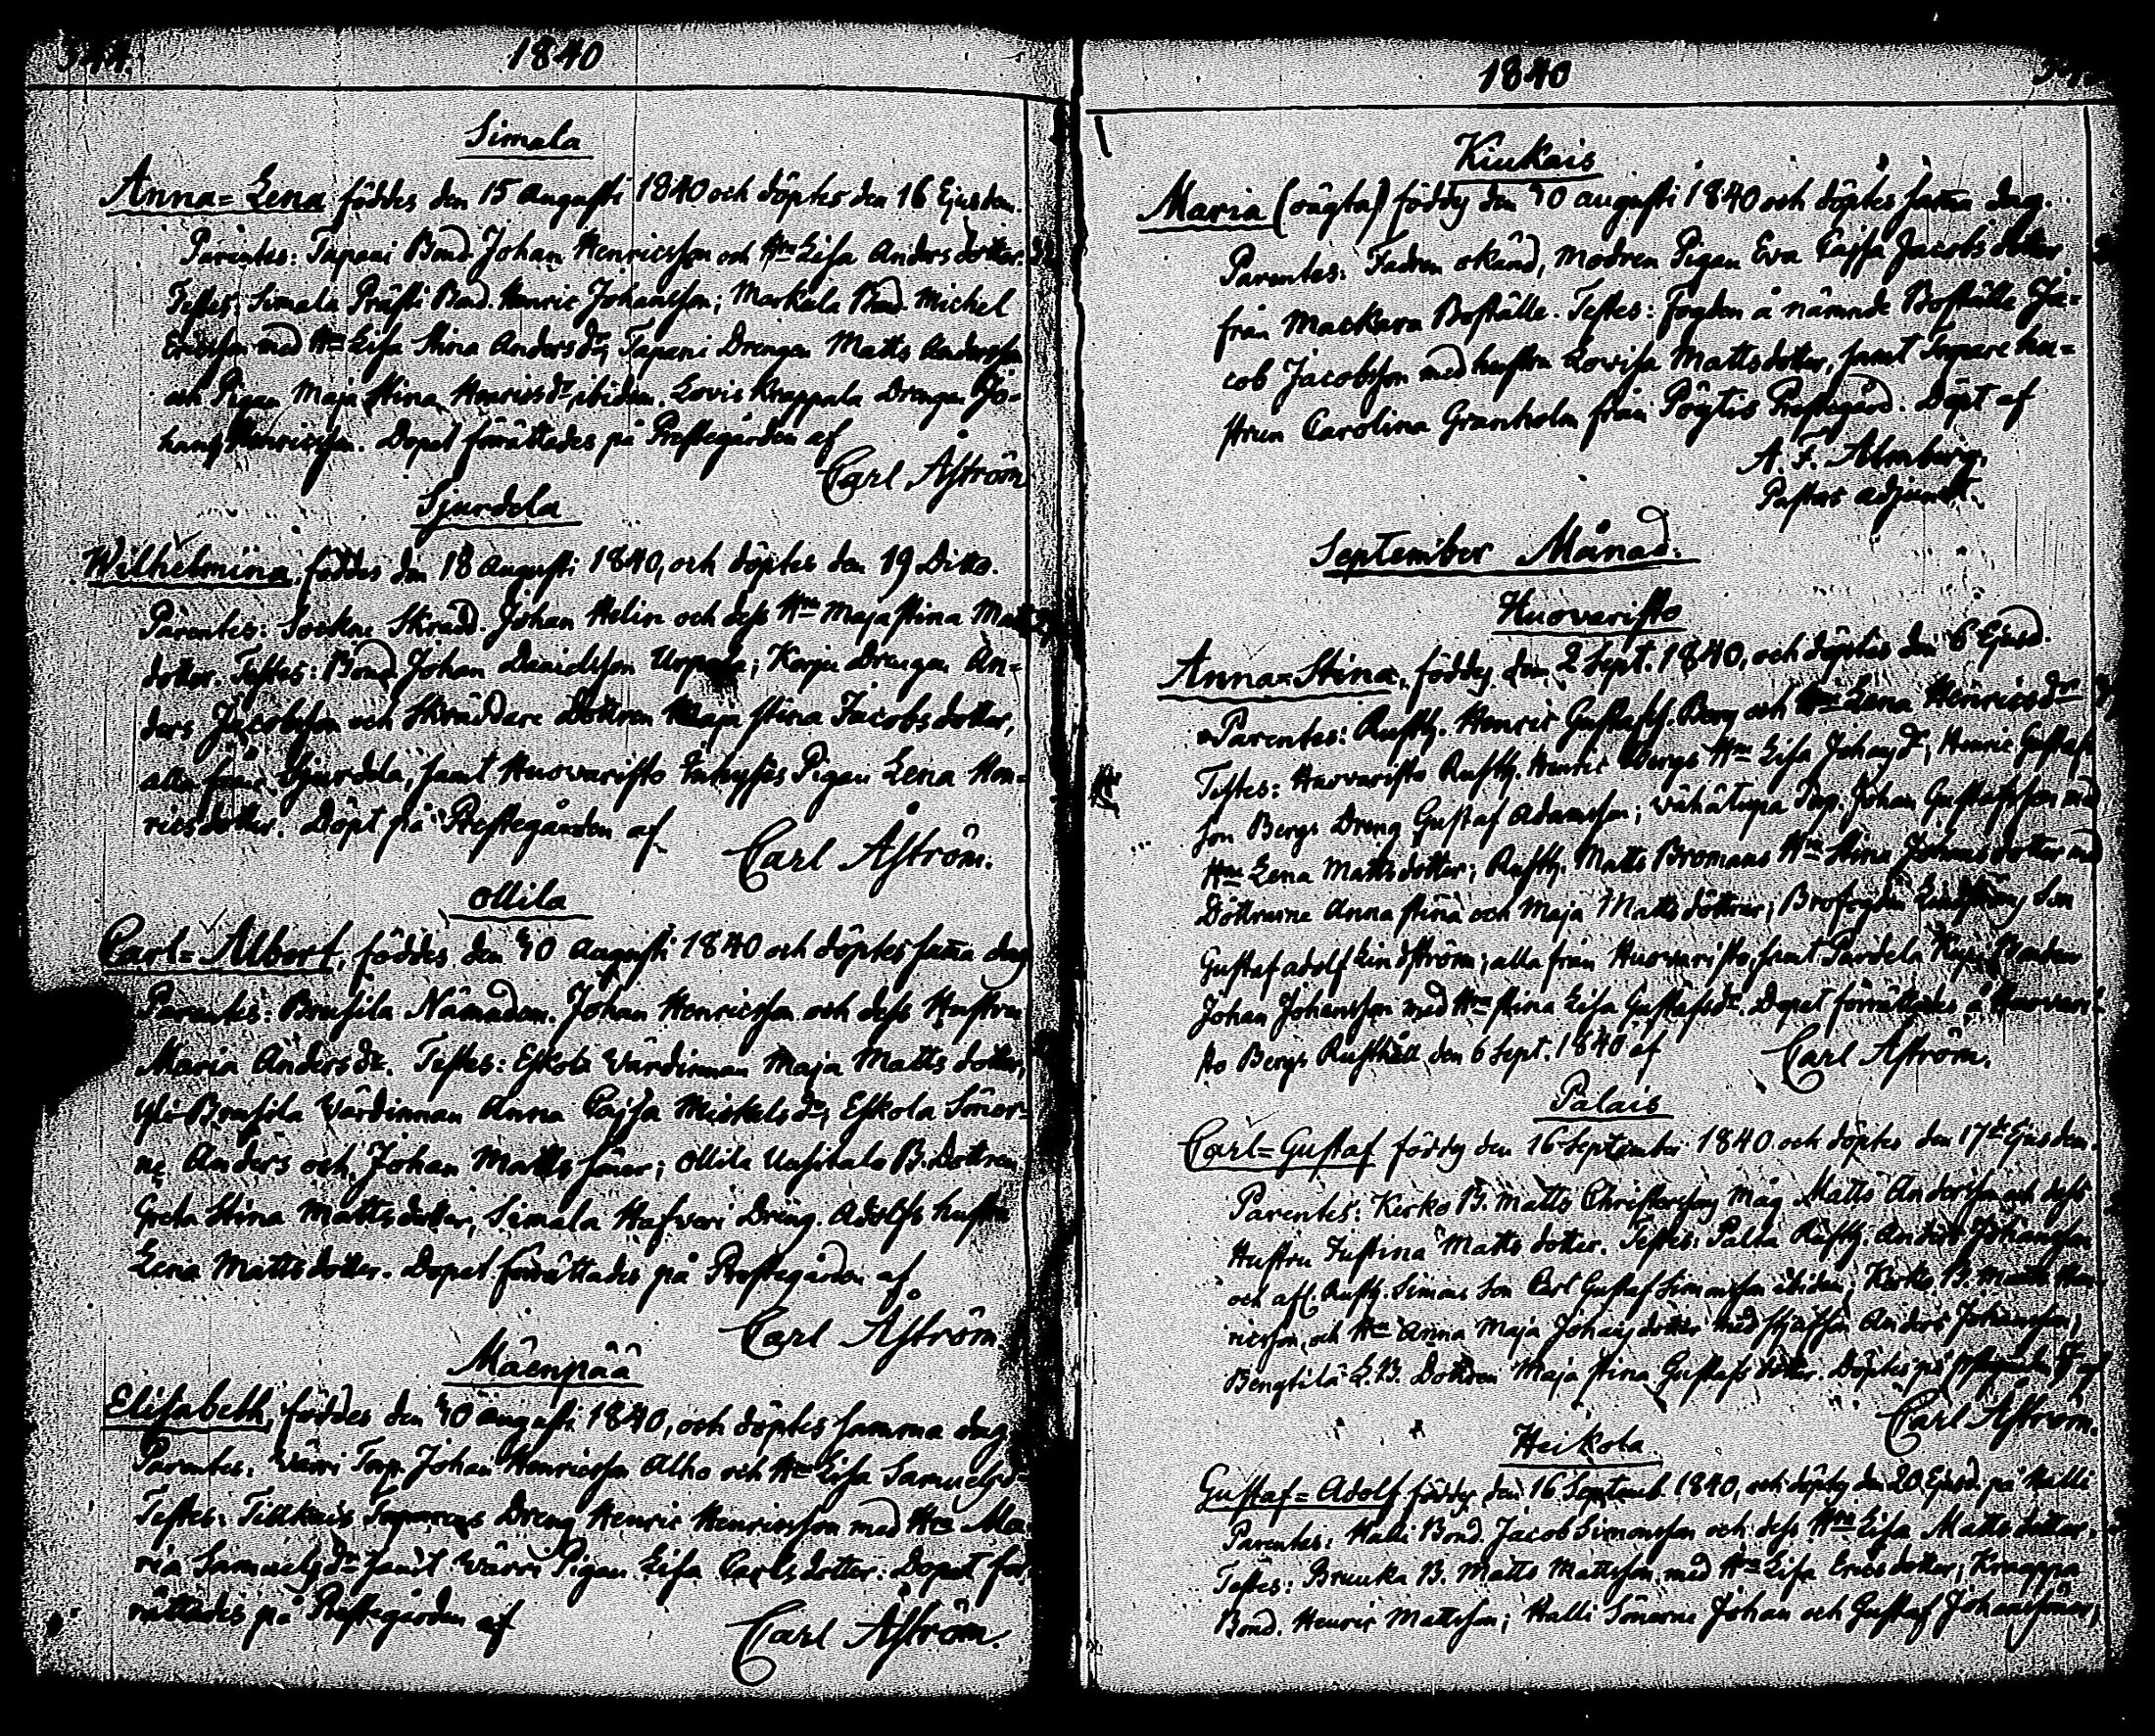 344.
1840
Simala
Anna=Lena föddes den 15 Augusti 1840 och döptes den 16 Ejusdem.
Parentes: Tapani Bond. Johan Henricsson och Hru Lisa Anders dotter.
Testes: Simala Prästi Bond. Henric Johansson; Markula Bond. Michel
Ericsson med Hru Lisa Stina Andersdr, Tapani Drengen Matts Andersson
och Pigan Maja Stina Henricsdr, ibidem. Lovis Knappala Drengen Jo-
hans Henricsson. Dopet förrättades på Prestegården af
Carl Åström
Sjurdela
Wilhelmina, föddes den 18 Augusti 1840, och döptes den 19 Ditto.
Parentes: Sockne Skradd. Johan Helin och dess Hru Maja Stina Matts
dotter. Testes: Bond Johan Danielsson Urpola; Korju Drengen An-
ders Jacobsson och Skräddare Dottren Maja Stina Jacobs dotter,
alla från Sjurdela, samt Huovaristo Inhyses Pigan Lena Hen-
ricsdotter. Döpt på Prestegården af
Carl Åström.
Ollila
Carl=Albert, föddes den 40 Augusti 1840 och döptes sama dag
Parentes: Brusila Nämndem. Johan Henricsson och dess Hustru
Maria Anders dr. Testes: Eskola Värdinnan Maja Matts dotter,
Yli-Brusila Värdinnan Anna Cajsa Mickels dr, Eskola Söner-
ne Anders och Johan Matts söner; Ollila Uusitalo B. Dottren
Greta Stina Mattsdotter, Simala Hafveri Dreng. Adolfs hustru
Lena Mattsdotter. Dopet förrättades på Prestegården af
Carl Åström
Mäenpää
Elisabeth, föddes den 40 Augusti 1840, och döptes samma dag
Parentes: Wärri Torp. Johan Henricsson Alho och Hru Lisa Samuelsdr
Testes: Tillkais Torparens Dreng Henric Henricsson med Hru Ma-
ria Samuelsdr samt Wärri Pigan Lisa Carlsdotter. Dopet för-
rättades på Prestegården af
Carl Åström.
1840
Kiukais
Maria (oägta) föddes den 40 Augusti 1840 och döptes sama dag.
Parentes: Fadren okänd, Modren Pigan Eva Caisa Jacobs dotter
från Mackara Boställe. Testes: Fogden å nämnde Boställe Ja-
cob Jacobsson med hustru Lovisa Mattsdotter, samt Torpare hu-
strun Carolina Granholm från Pögtis Prestegård. Döpt af
A. F. Almberg.
Pastors adjunct.
September Månad.
Huovaristo
Anna=Stina, föddes den 2 Sept. 1840, och döptes den 6 Ejusd.
Parentes: Rusth. Henric Gustafss. Berg och Hru Lena Henricsdr
Testes: Huovaristo Rusth. Henric Bergs Hru Lisa Johansdr; Henric Gustafs
son Bergs Dreng Gustaf Adamsson; Vähätupa Torp. Johan Gustafsson med
Hru Lena Mattsdotter; Rusth. Matts Bromans Hru Stina Johansdotter med
Döttrarne Anna Stina och Maja Matts döttrar; Brofogden Lindströms Son
Gustaf Adolf Lindström; alla från Huovaristo, samt Pärdela
Johan Johansson med Hru Stina Lisa Gustafsdr. Dopet förrättades å Huovari-
sto Bergs Rusthåll den 6 Sept. 1840 af
Carl Åström.
Palais
Carl=Gustaf föddes den 16 September 1840 och döptes den 17de Ejusdem.
Parentes: Kerko B. Matts Christerssons Måg Matts Andersson och dess
Hustru Justina Matts dotter. Testes: Palza Rusth. Anders Johansson
och afl. Rusth. Simons Son Carl Gustaf Simonsson ibidem; Kerko B. Matts Hen-
ricsson, och Hru Anna Maja Johansdotter med Anders Johansson,
Bengtilä L. B. Dottren Maja Stina Gustafs dotter. Döptes på af
Carl Åström.
Heikola
Gustaf=Adolf föddes den 16 Septemb. 1840, och döptes den 20 Ejusd på Halli
Parentes: Halli Bond. Jacob Simonsson och dess Hru Lisa Matts dotter,
Testes: Bruuka B. Matts Mattsson med Hru Lisa Ericsdotter, Knappa
Bond. Henric Mattsson; Halli Sönerne Johan och Gustaf Johanssöner,